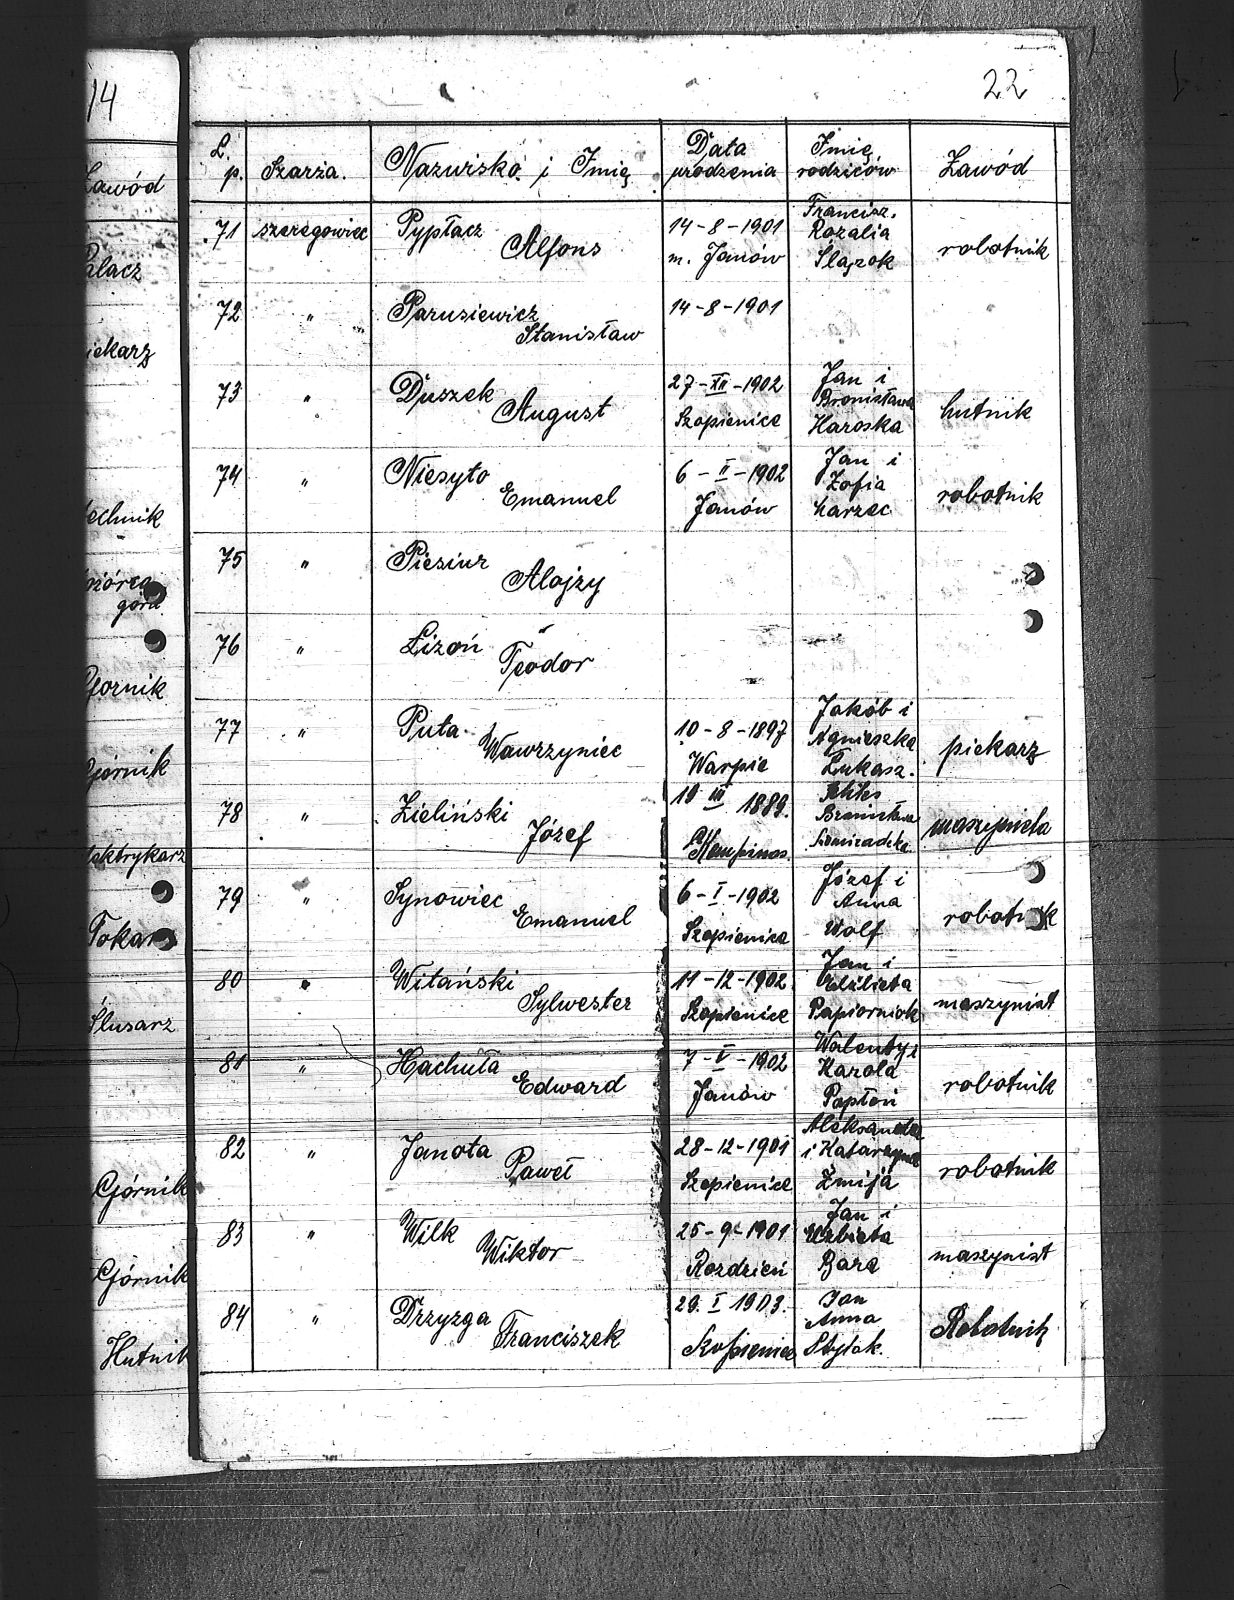 14
Zawód
Palacz
piekarz
technik
górn.
Gornik
Górnik
elektrykarz
Tokarz
Ślusarz
Górnik
Górnik
Hutnik
22
L. p. Szarża. Nazwisko i Imię Data urodzenia Imię rodziców Zawód
71 szeregowiec Pypłacz Alfons 14-8-1901 m. Janów Francisz. Rozalia Ślązok robotnik
72 " Parusiewicz Stanisław 14-8-1901
73 " Duszek August 27-XII-1902 Szopienice Jan i Bronisława Haroska hutnik
74 " Niesyto Emanuel 6-II-1902 Janów Jan i Zofia Karzec robotnik
75 " Piesiur Alojzy
76 " Lizoń Teodor
77 " Puta Wawrzyniec 10-8-1897 Warpie Jakób i Agnieszka Łukasz. piekarz
78 " Zieliński Józef 19 III 1889. Bronisława maszynista
79 " Synowiec Emanuel 6-I-1902 Szopienice Józef i Anna Wolf robotnik
80 " Witański Sylwester 11-12-1902 Szopienice Jan i Elżbieta Papiorniok maszynist
81 " Hachuła Edward 7-V-1902 Janów Walenty i Karola Papłoń robotnik
82 " Janota Paweł 28-12-1901 Szopienice Aleksander i Katarzyna Żmija robotnik
83 " Wilk Wiktor 25-9-1901 Rozdzień Jan i Elżbieta Bara maszynist
84 " Drzyzga Franciszek 29. I 1903. Szopienice Jan Anna Robotnik